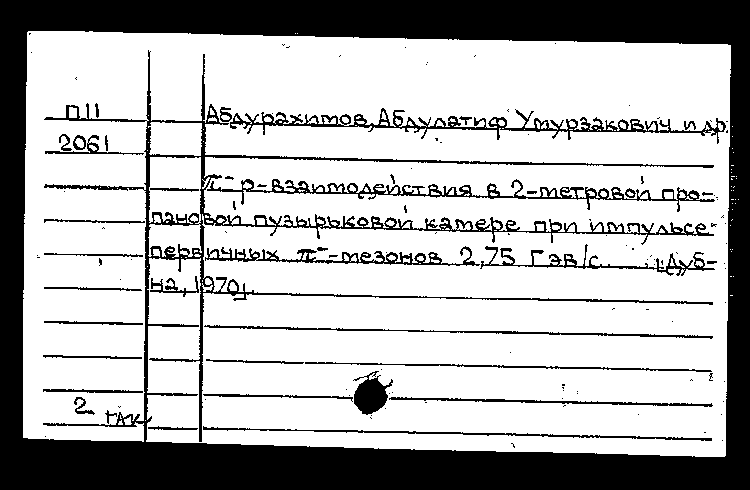 П11 Абдурахимов, Абдулатиф Умурзакович и др.
2061
π⁻p-взаимодействия в 2-метровой про-
пановой пузырьковой камере при импульсе
первичных π⁻-мезонов 2,75 Гэв/с. Дуб-
на, 1970г.
2 ГАК